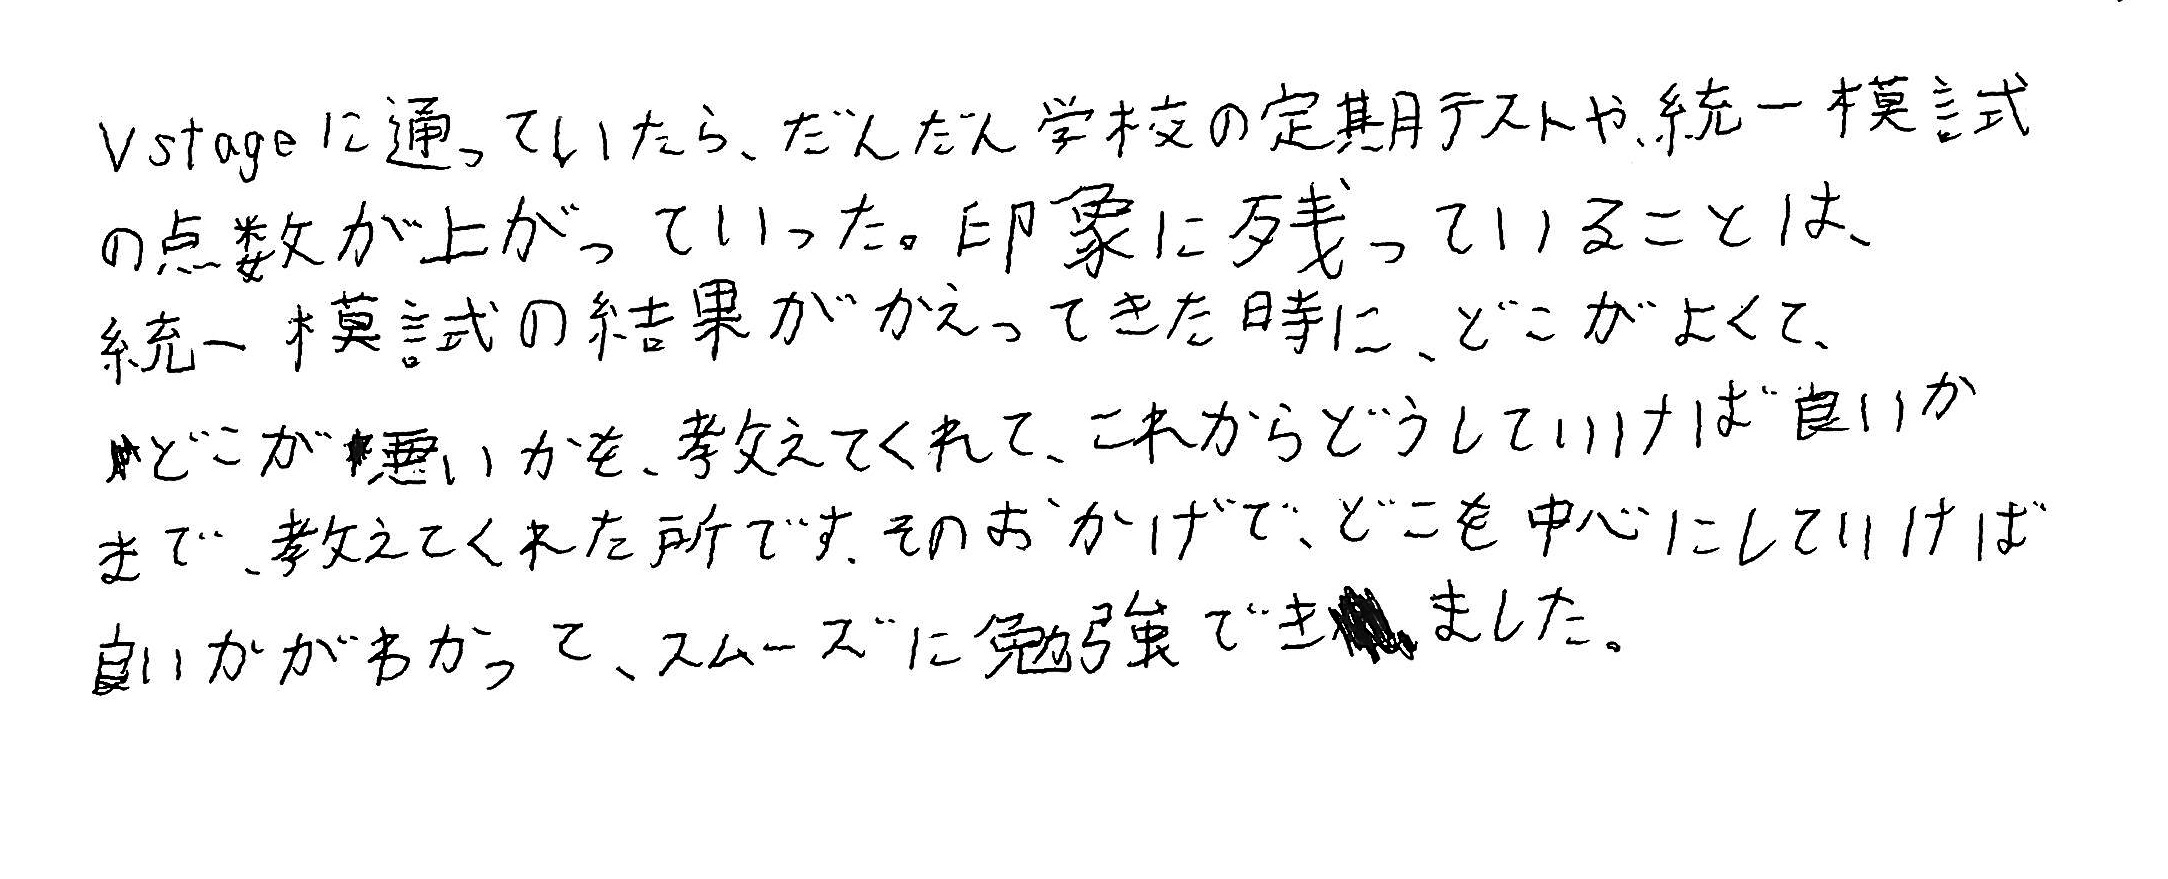 Vstageに通っていたら、だんだん学校の定期テストや、統一模試
の点数が上がっていった。印象に残っていることは、
統一模試の結果がかえってきた時に、どこがよくて、
どこが悪いかを、教えてくれて、これからどうしていけば良いか
まで、教えてくれた所です。そのおかげで、どこを中心にしていけば
良いかがわかって、スムーズに勉強できました。